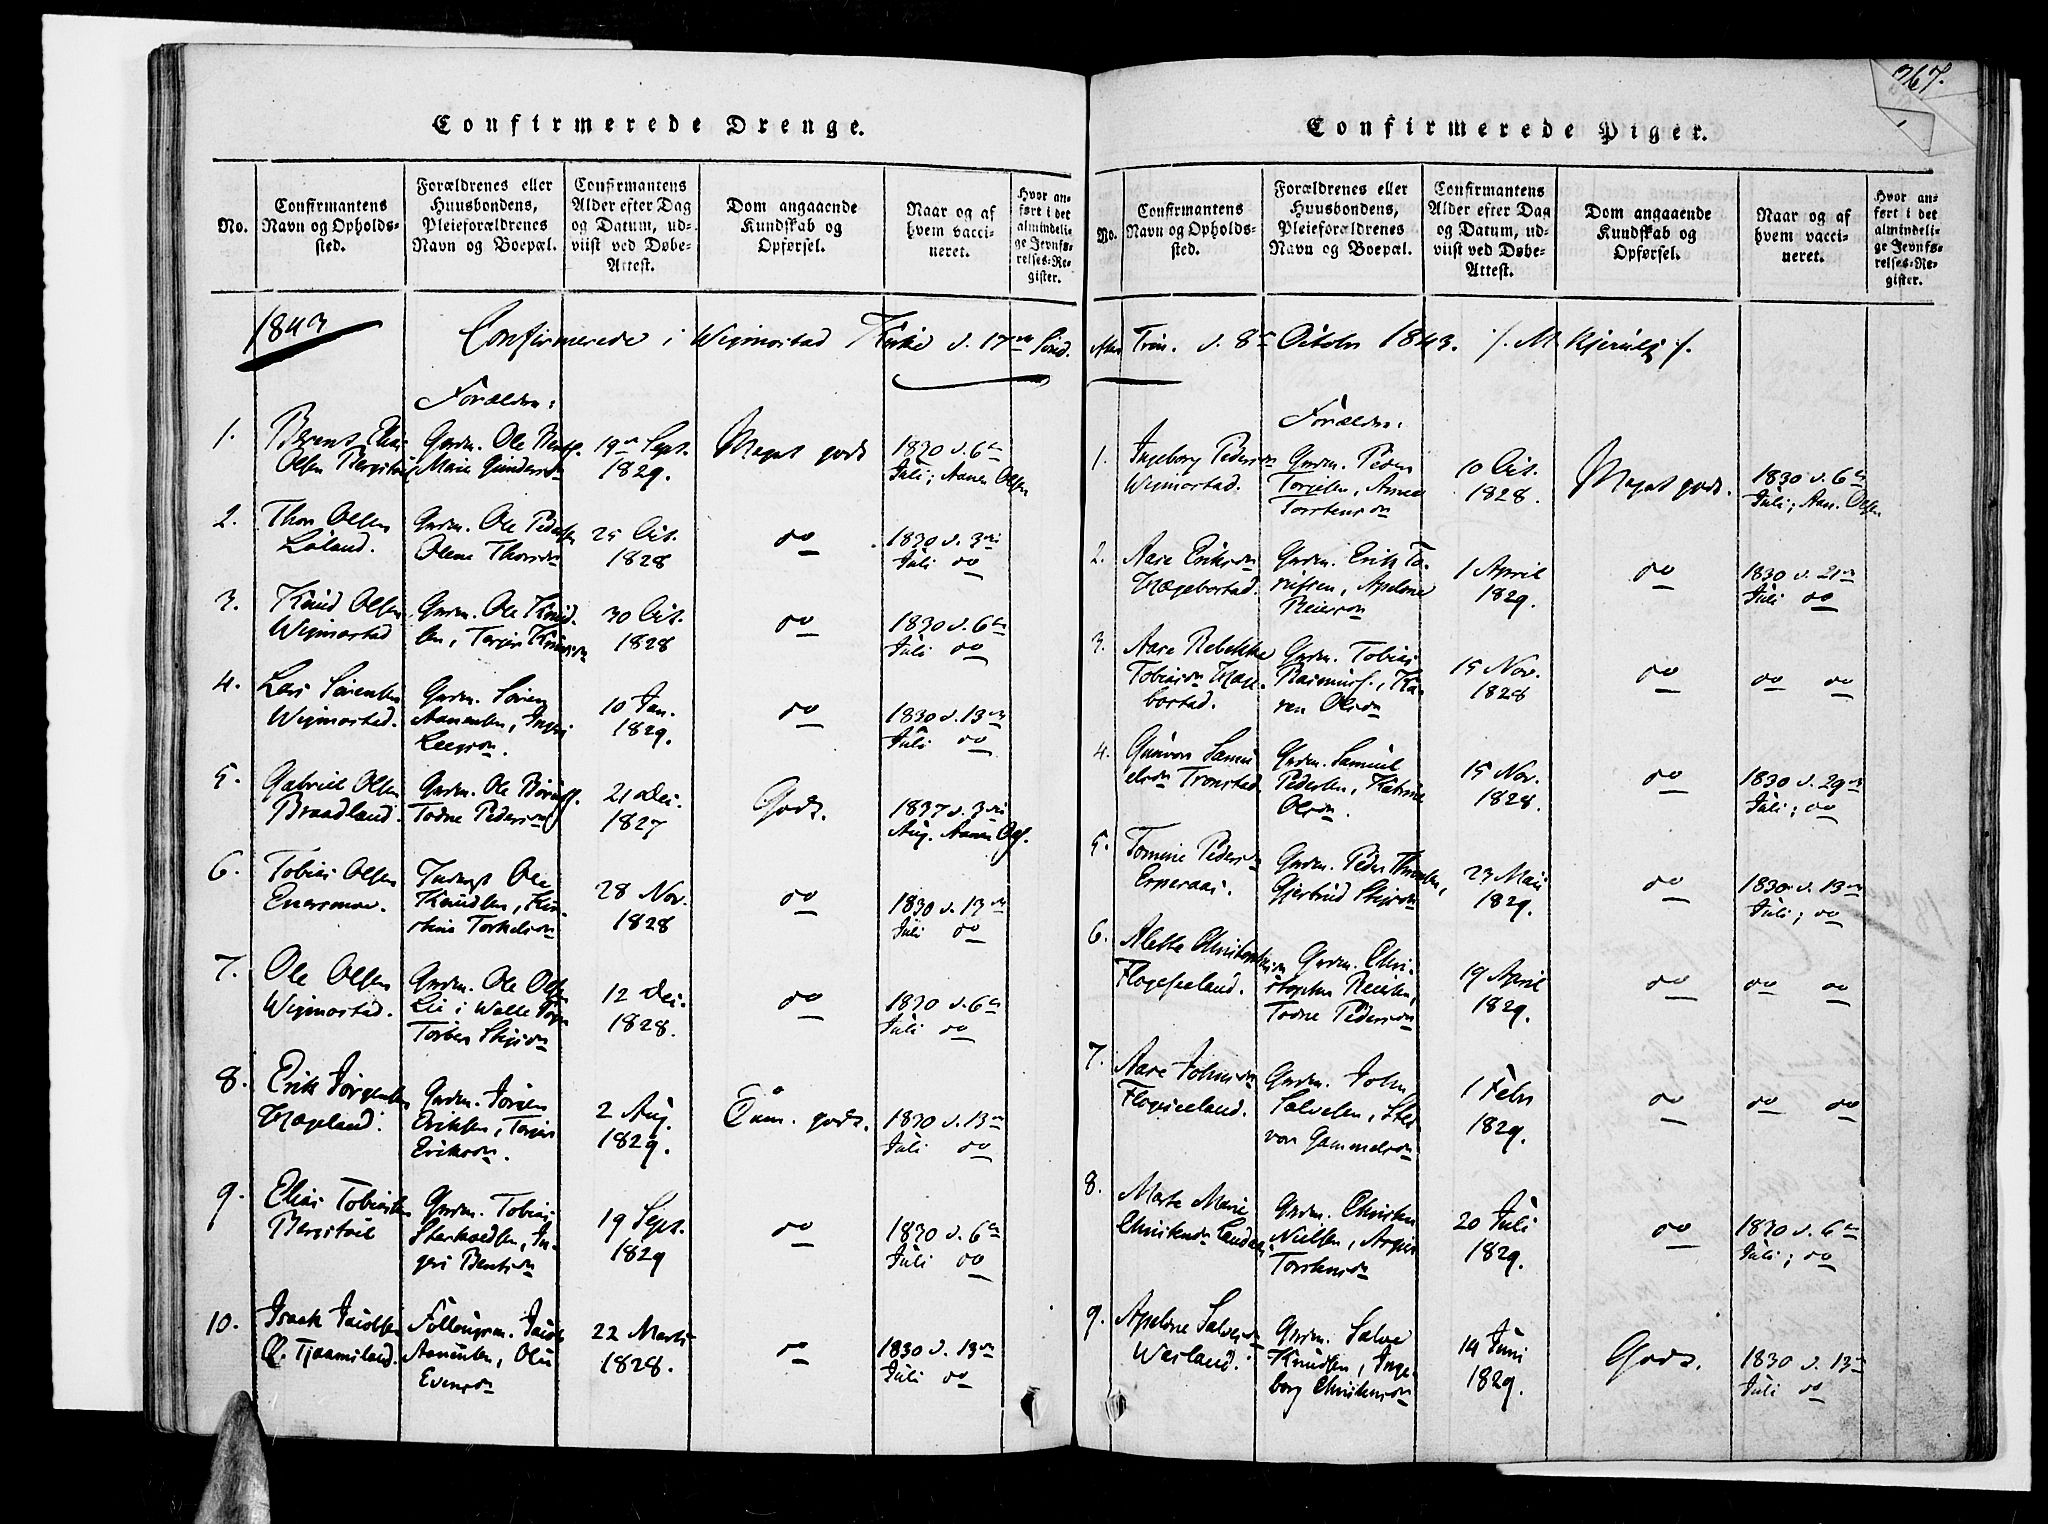 367.
Confirmerede Drenge.
No.
Confirmantens
Navn og Opholds-
sted.
Forældrenes eller
Huusbondens,
Pleieforældrenes
Navn og Boepæl.
Confirmantens
Alder efter Dag
og Datum, ud-
viist ved Døbe-
Attest.
Dom angaaende
Kundskab og
Opførsel.
Naar og af
hvem vacci-
neret.
Hvor an-
ført i det
almindeli-
ge Jevnfø-
relses-Re-
gister.
1843
Confirmerede i Wigmostad Kirke d. 17de Sønd.
Forældre:
1.
Olsen
Grdm. Ole
Marie
19de Sept.
1829.
Meget godt
1830 d. 6te
Juli, Aanen Olsen
2.
Thor Olsen
Løland.
Grdm. Ole Pedersen
Olene
25 Oct.
1828
do
1830 d. 3die
Juli do
3.
Knud Olsen
Wigmostad
Grdm. Ole Knud-
sen,
30 Oct.
1828
do
1830 d. 6te
Juli do
4.
Lars Sørensen
Wigmostad.
Grdm. Søren
Aanensen,
10 Jan.
1829.
do
1830 d. 13de
Juli do
5.
Gabriel Olsen
Braadland.
Grdm. Ole
Todne Pedersdn
21 Dec.
1827
Godt.
1837 d. 3die
Aug. Aanen Ols.
6.
Tobias Olsen
Ole
Knudsen, Kir-
stine Torkelsdn
28 Nov.
1828
do
1830 d. 13de
Juli do
7.
Ole Olsen
Wigmostad.
Grdm. Ole Ols.
Lie i Walle Sogn
12 Dec.
1828.
do
1830 d. 6te
Juli do
8.
Erik Jørgensen
Hægeland.
Grdm. Jørgen
Eriksen, Torjer
Eriksdn.
2 Aug.
1829.
godt.
1830 d. 13de
Juli do
9.
Elias Tobiassen
Grdm. Tobias
Starkoldsen, In-
geri Bentsdn
19 Sept.
1829
do
1830 d. 6te
Juli do
10.
Isaak Jacobsen
Ø. Tjaamsland.
Jacob
Aanensen, Olu
Evensdn
22 Marts
1828.
do
1830 d. 13de
Juli do
Confirmerede Piger.
No.
Confirmantens
Navn og Opholds-
sted.
Forældrenes eller
Huusbondens,
Pleieforældrenes
Navn og Boepæl.
Confirmantens
Alder efter Dag
og Datum, ud-
viist ved Døbe-
Attest.
Dom angaaende
Kundskab og
Opførsel.
Naar og af
hvem vacci-
neret.
Hvor an-
ført i det
almindeli-
ge Jevnfø-
relses-Re-
gister.
Trin. d. 8de October 1843. /. M Kjerulf /.
Forældre:
1.
Ingeborg Pedersdn
Wigmostad.
Grdm. Peder
Torgilsen, Anne
Torstensdn
10 Oct.
1828.
Meget godt.
1830 d. 6te
Juli; Aan. Olsen
2.
Aase Eriksdn
Hægebostad.
Grdm. Erik To-
rissen, Apelone
Reiersdn
1 April
1829.
do
1830 d. 21de
Juli do
3.
Aase Rebekka
Tobiasdn Hæge-
bostad.
Grdm. Tobias
Rasmuss., Ka-
ren Olsdn
15 Nov.
1828
do
do do
4.
Gunvor Samu-
elsdn Tronstad.
Grdm. Samuel
Pedersen, Katrine
Olsdn.
15 Nov.
1828.
do
1830 d. 29de
Juli; do
5.
Tomine Pedersdn
Esperaas.
Gjertrud
23 Mai
1829.
do
1830 d. 13de
Juli; do
6.
Alette Christophersdn
Flogeseeland.
Grdm. Chri-
stopher Reiersen,
Todne Pedersdn
19 April
1829.
do
do do
7.
Aase Johnsdn
Flogeseeland.
Grdm. John
Salvesen,
Gammelsdn
1 Febr
1829.
do
do do
8.
Marte Marie
Christensdn
Grdm. Christen
Nielsen, Asgier
Torstensdn
20 Juli
1829.
do
1830 d. 6te
Juli; do
9.
Apelone Salvesdn
Wasland.
Grdm. Salve
Knudsen, Inge-
borg Christensdn
14 Juni
1829.
Godt.
1830 d. 13de
Juli do